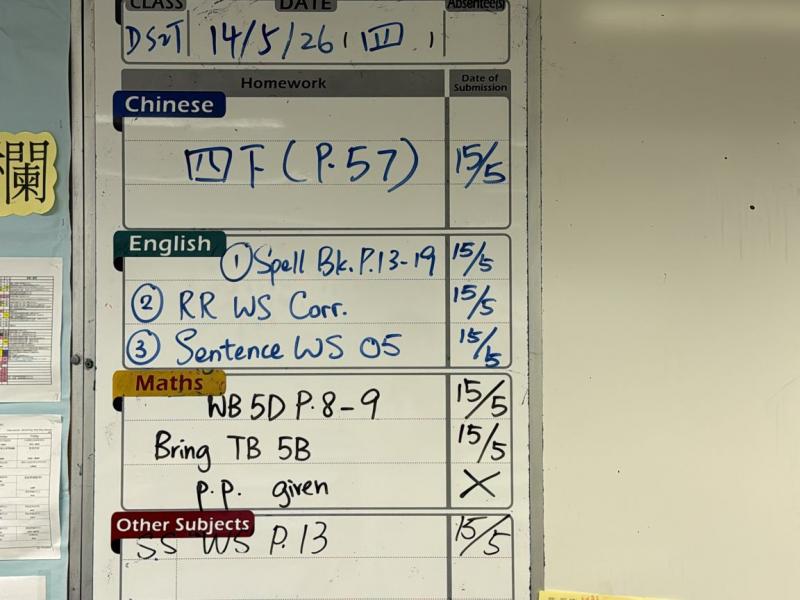 CLASS DATE Absentee(s)
DS2T 14/5/26 (四)
Homework Date of Submission
Chinese
四下 (P.57) 15/5
English
① Spell Bk. P.13-19 15/5
② RR WS Corr. 15/5
③ Sentence WS 05 15/5
Maths
WB 5D P.8-9 15/5
Bring TB 5B 15/5
p.p. given X
Other Subjects
SS WS P.13 15/5
欄